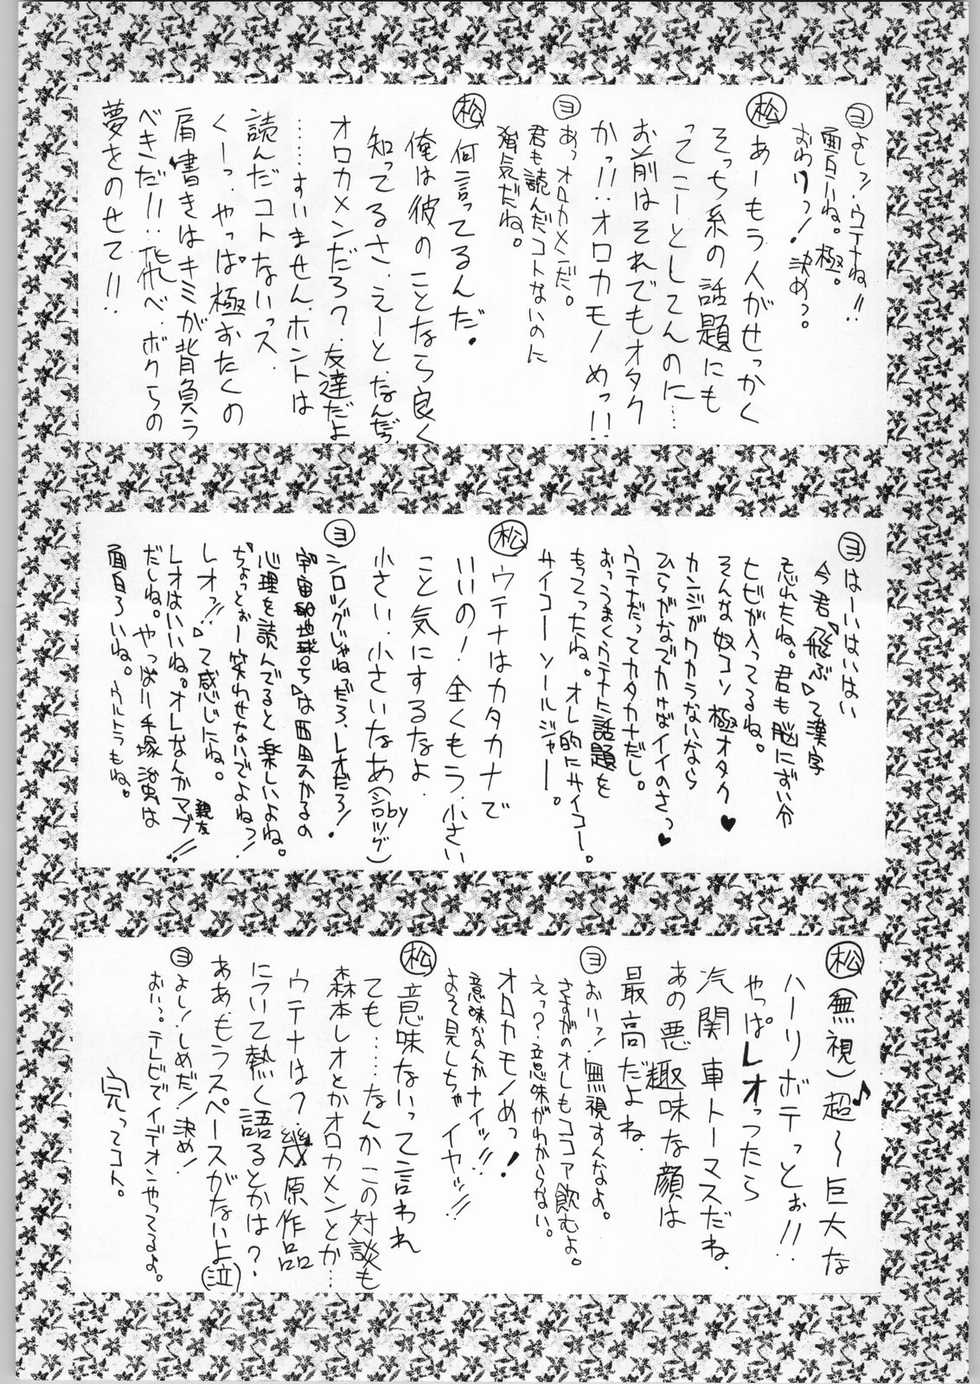 ヨ よしッ!ウテナね!!
面白いね。極。
おわりっ!決めっ。
松 あーもう人がせっかく
そっち系の話題にも
ってこーとしてんのに…
お前はそれでもオタク
かっ!!オロカモノめっ!!
ヨ あっオロカメンだ。
君も読んだコトないのに
殊気だね。
松 何言ってるんだ。
俺は彼のことなら良く
知ってるさ、えーと、なんだっ
オロカメンだろ?友達だよ
……すいません、ホントは
読んだコトないっス、
くーっ、やっぱ極おたくの
肩書きはキミが背負う
べきだ!!飛べ、ボクらの
夢をのせて!!
ヨ はーいはいはい
今君「飛ぶ」って漢字
忘れたね。君も脳にずい分
ヒビが入ってるね。
そんな奴コソ極オタク♥
カンジがワカラないなら
ひらがなでカけばイイのさっ♥
ウテナだってカタカナだし。
おっうまくウテナに話題を
もってったね。オレ的にサイコー。
サイコーソールジャー。
松 ウテナはカタカナで
いいの!全くもう、小さい
こと気にするなよ、
小さい、小さいなあ(シロッグ)by
ヨ シロッグじゃねーだろ、レオだろ!
「宇宙船地球号」は西田ひかるの
心理を読んでると楽しいよね。
「ちょっとぉー笑わせないでよねっ!
レオッ!!」って感じにね。
レオはいいね。オレなんかマブ親友!!
だしね。やっぱ川手塚治虫は
面白ろいね。ウルトラもね。
松 (無視)超~巨大な♪
ハーリボテっとぉ!!
やっぱレオったら
汽関車トーマスだね、
あの悪趣味な顔は
最高だよね、
ヨ おいッ!無視すんなよ。
さすがのオレもココア飲むよ。
えっ?意味がわからない。
オロカモノめっ!
意味なんかナイッ!!
よそ見しちゃイヤッ!!
松 意味ないって言われ
ても……なんかこの対談も
森本レオとかオロカメンとか…
ウテナは?幾原作品
について熱く語るとかは?
ああ、もうスペースがないよ(泣)
ヨ よし!しめだ!決め!
おいっ。テレビでイデオンやってるよ。
完ってコト。